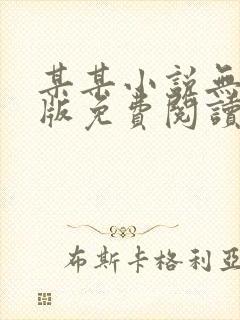 某某小說無
版免費閱讀
布斯卡格利亞